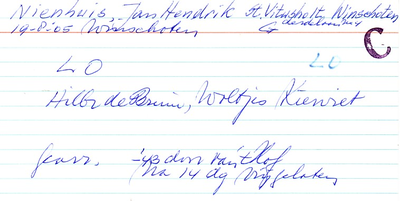 Nienhuis, Jan Hendrik St. Vitusholt, Winschoten
19-8-05 Winschoten G
C
LO LO
Hilbr de Bruin, Woltjes Kieviet
gearr. '43 door van 't Hof
Na 14 dg vrijgelaten